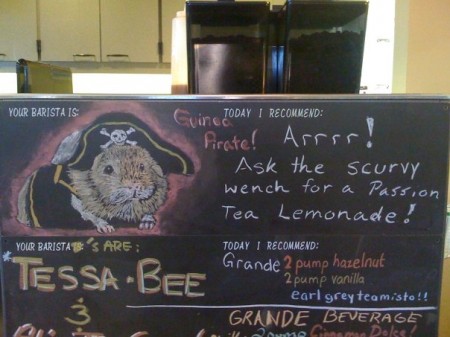 YOUR BARISTA IS:
Guinea
Pirate!
TODAY I RECOMMEND:
Arrrr!
Ask the scurvy
wench for a Passion
Tea Lemonade!
YOUR BARISTA #'s ARE:
TESSA • BEE
&
TODAY I RECOMMEND:
Grande 2 pump hazelnut
2 pump vanilla
earl grey teamisto!!
GRANDE BEVERAGE
2 pump Cinnamon Dolce!